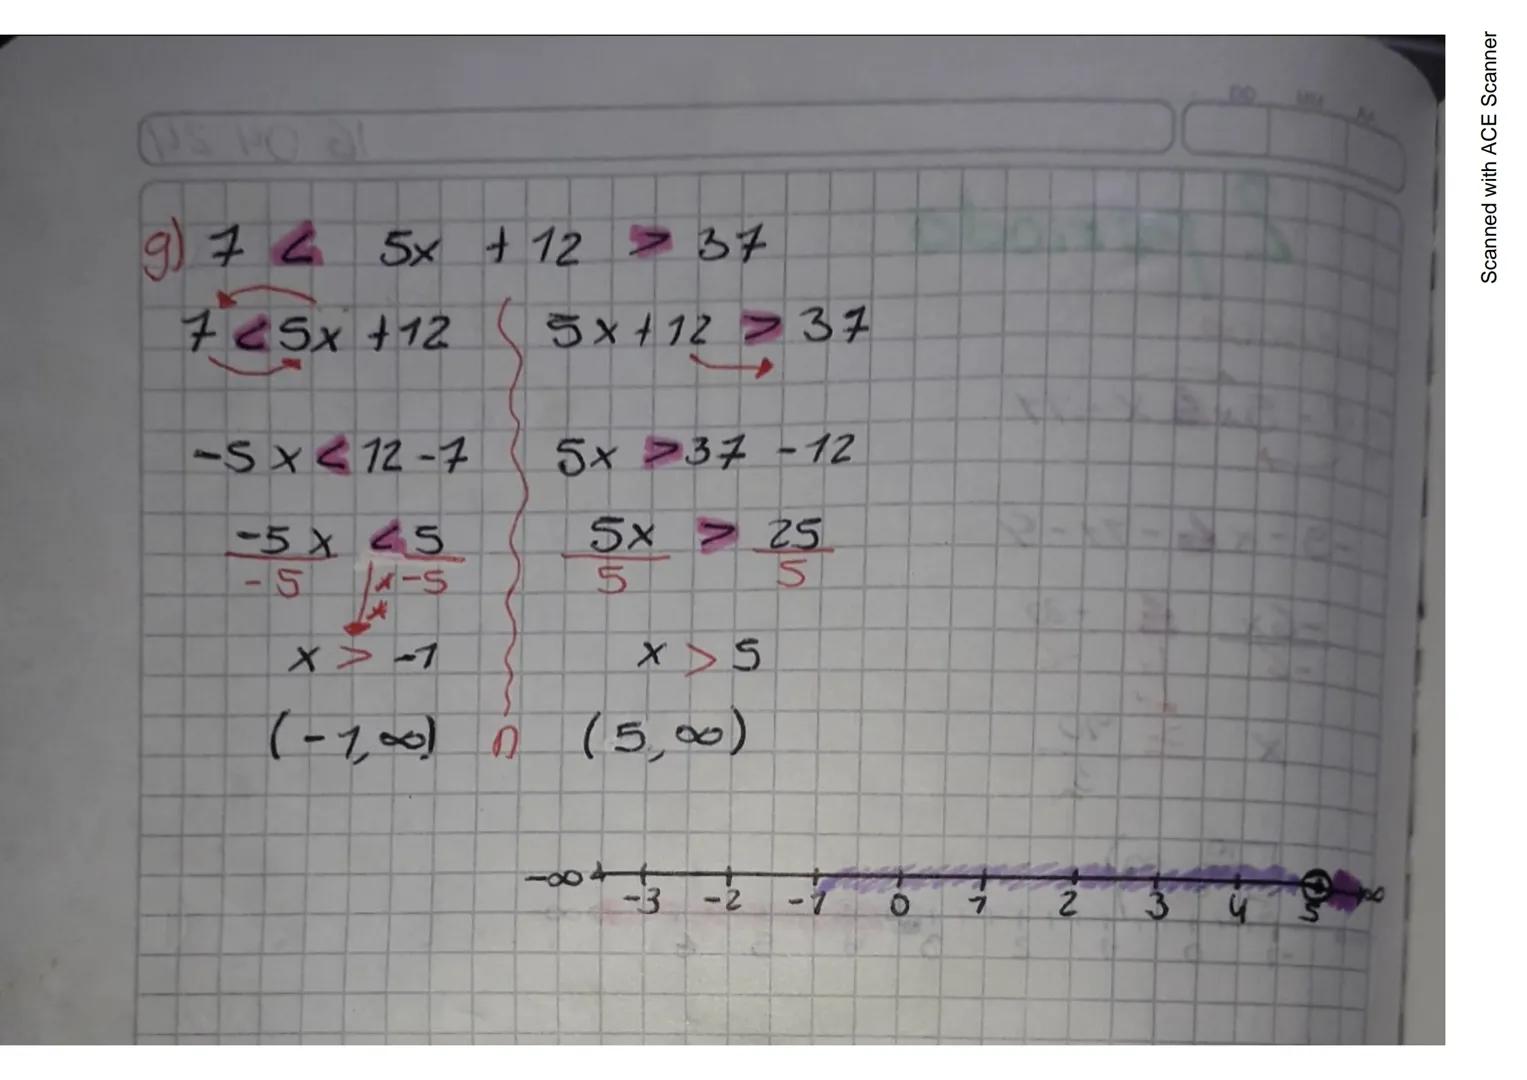 g) 7 < 5x + 12 > 37
7 < 5x + 12 5x + 12 > 37
-5x < 12 - 7 5x > 37 - 12
-5x < 5 5x > 25
-5 x-5 5 5
x > -1 x > 5
(-1, ∞) ∩ (5, ∞)
-∞ -3 -2 -1 0 1 2 3 4 5 ∞
Scanned with ACE Scanner